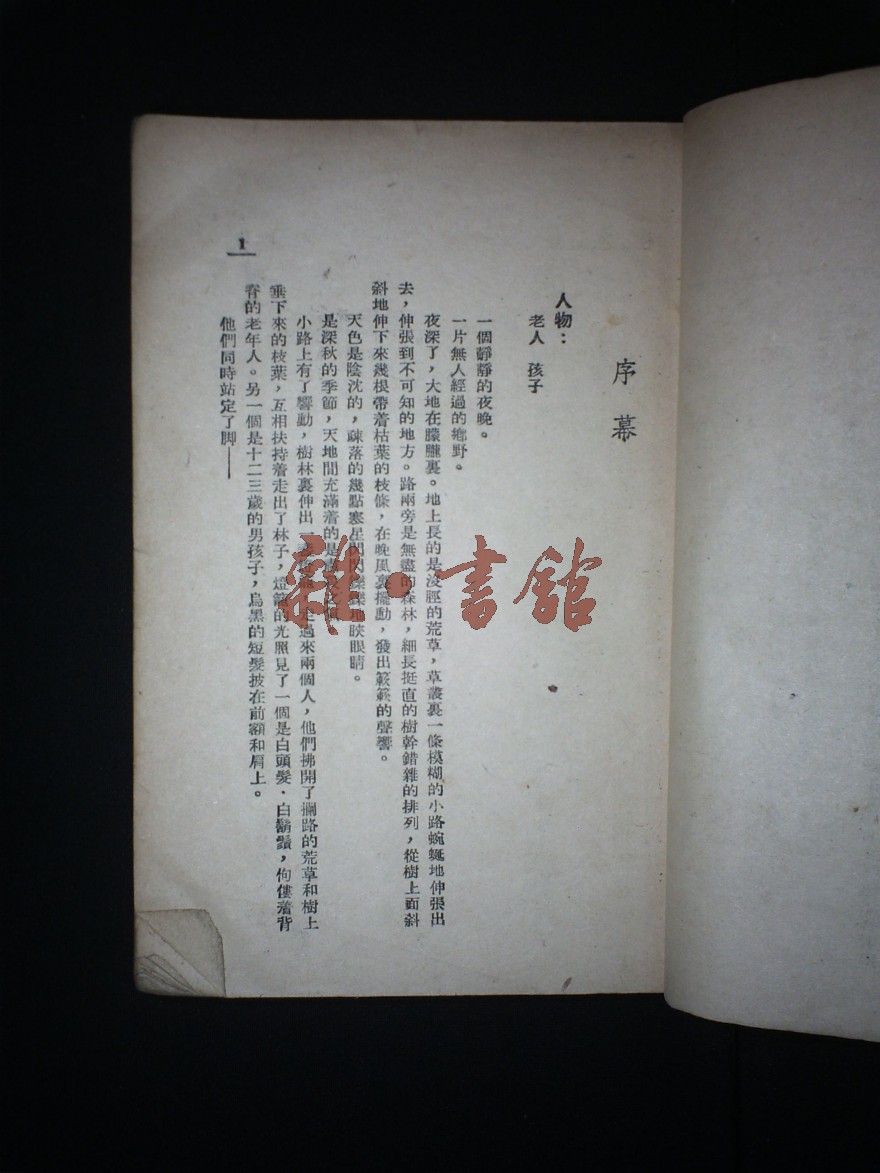 序幕
人物：
老人　孩子
一個靜靜的夜晚。
一片無人經過的鄉野。
夜深了，大地在朦朧裏。地上長的是沒脛的荒草，草叢裏一條模糊的小路蜿蜒地伸張出
去，伸張到不可知的地方。路兩旁是無盡的森林，細長挺直的樹幹錯雜的排列，從樹上面斜
斜地伸下來幾根帶着枯葉的枝條，在晚風裏擺動，發出簌簌的聲響。
天色是陰沈的，疎落的幾點寒星閃閃爍爍地䀹眼睛。
是深秋的季節，天地間充滿着的是
小路上有了響動，樹林裏伸出一過來兩個人，他們拂開了攔路的荒草和樹上
垂下來的枝葉，互相扶持着走出了林子，燈籠的光照見了一個是白頭髮．白鬍鬚，佝僂着背
脊的老年人。另一個是十二三歲的男孩子，烏黑的短髮披在前額和肩上。
他們同時站定了脚——
1
雜·書館